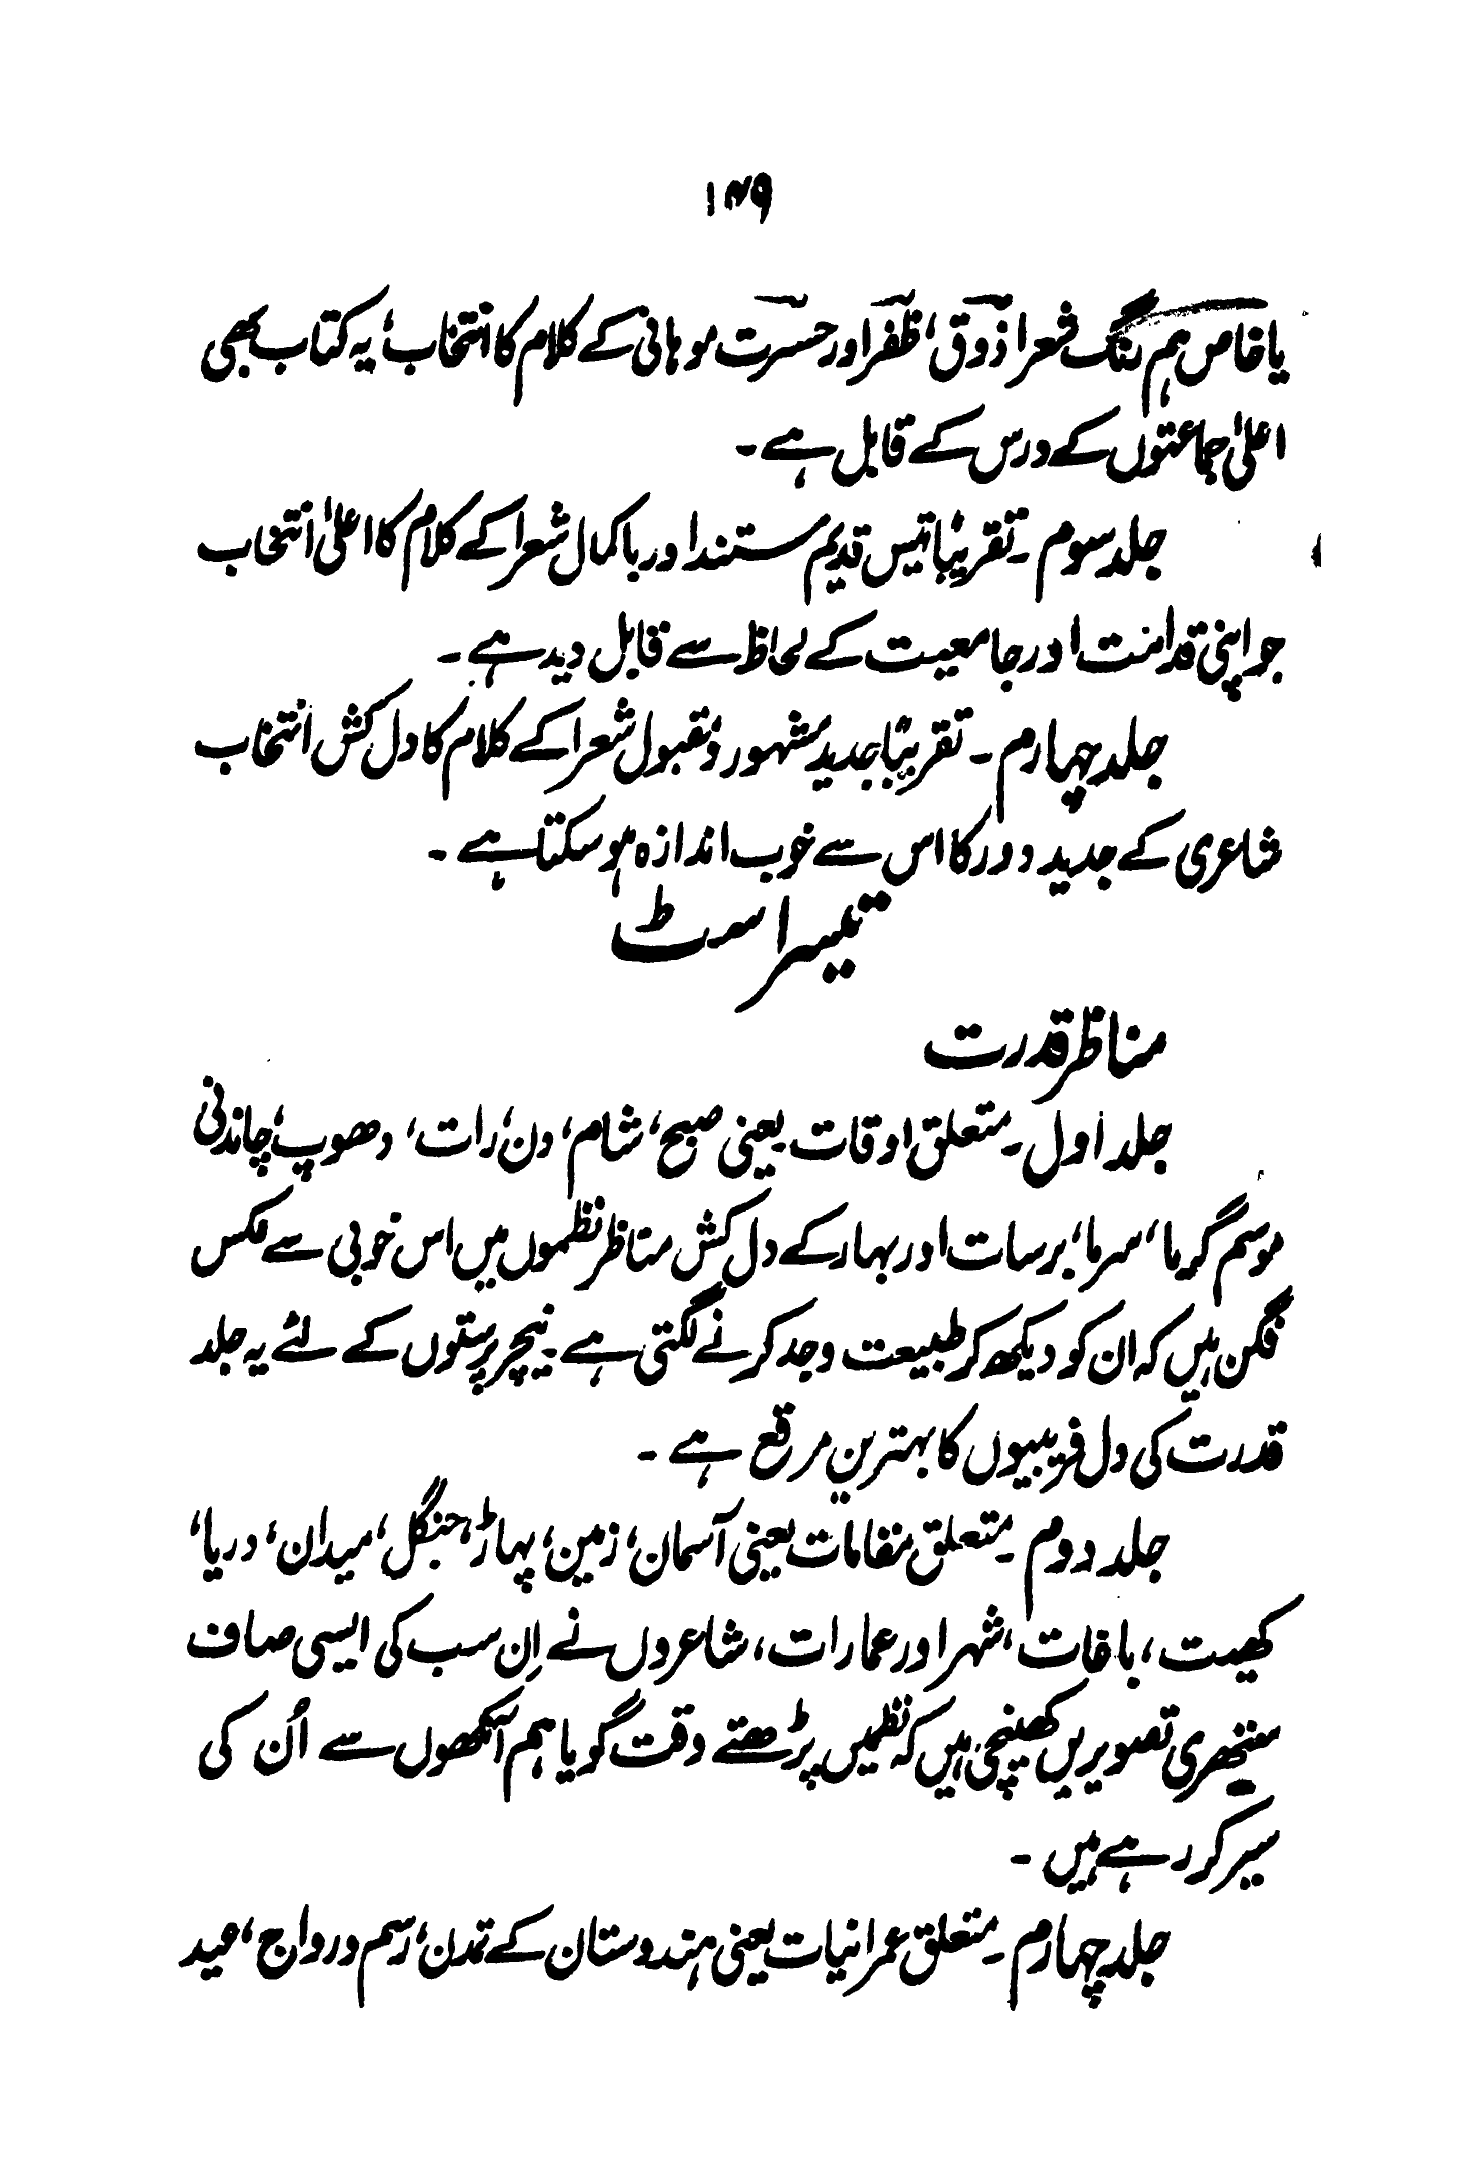 ۱۴۹
یا خاص ہم رنگ شعرا ذوق، ظفر اور حسرت موہانی کے کلام کا انتخاب، یہ کتاب بھی
اعلیٰ جماعتوں کے درس کے قابل ہے ۔
جلد سوم ۔ تقریباً تیس قدیم مستند اور باکمال شعرا کے کلام کا اعلیٰ انتخاب
جو اپنی قدامت اور جامعیت کے لحاظ سے قابل دید ہے ۔
جلد چہارم ۔ تقریباً جدید مشہور و مقبول شعرا کے کلام کا دل کش انتخاب
شاعری کے جدید دور کا اس سے خوب اندازہ ہو سکتا ہے ۔
تیسرا سٹ
مناظر قدرت
جلد اول ۔ متعلق اوقات یعنی صبح، شام، دن، رات، دھوپ، چاندنی
موسم گرما، سرما، برسات اور بہار کے دل کش مناظر نظموں میں اس خوبی سے عکس
فگن ہیں کہ ان کو دیکھ کر طبیعت وجد کرنے لگتی ہے ۔ نیچر پرستوں کے لئے یہ جلد
قدرت کی دل فریبیوں کا بہترین مرقع ہے ۔
جلد دوم ۔ متعلق مقامات یعنی آسمان، زمین، پہاڑ، جنگل، میدان، دریا،
کھیت، باغات، شہر اور عمارات، شاعروں نے اِن سب کی ایسی صاف
ستھری تصویریں کھینچی ہیں کہ نظمیں پڑھتے وقت گویا ہم آنکھوں سے اُن کی
سیر کر رہے ہیں ۔
جلد چہارم ۔ متعلق عمرانیات یعنی ہندوستان کے تمدن، رسم و رواج، عید